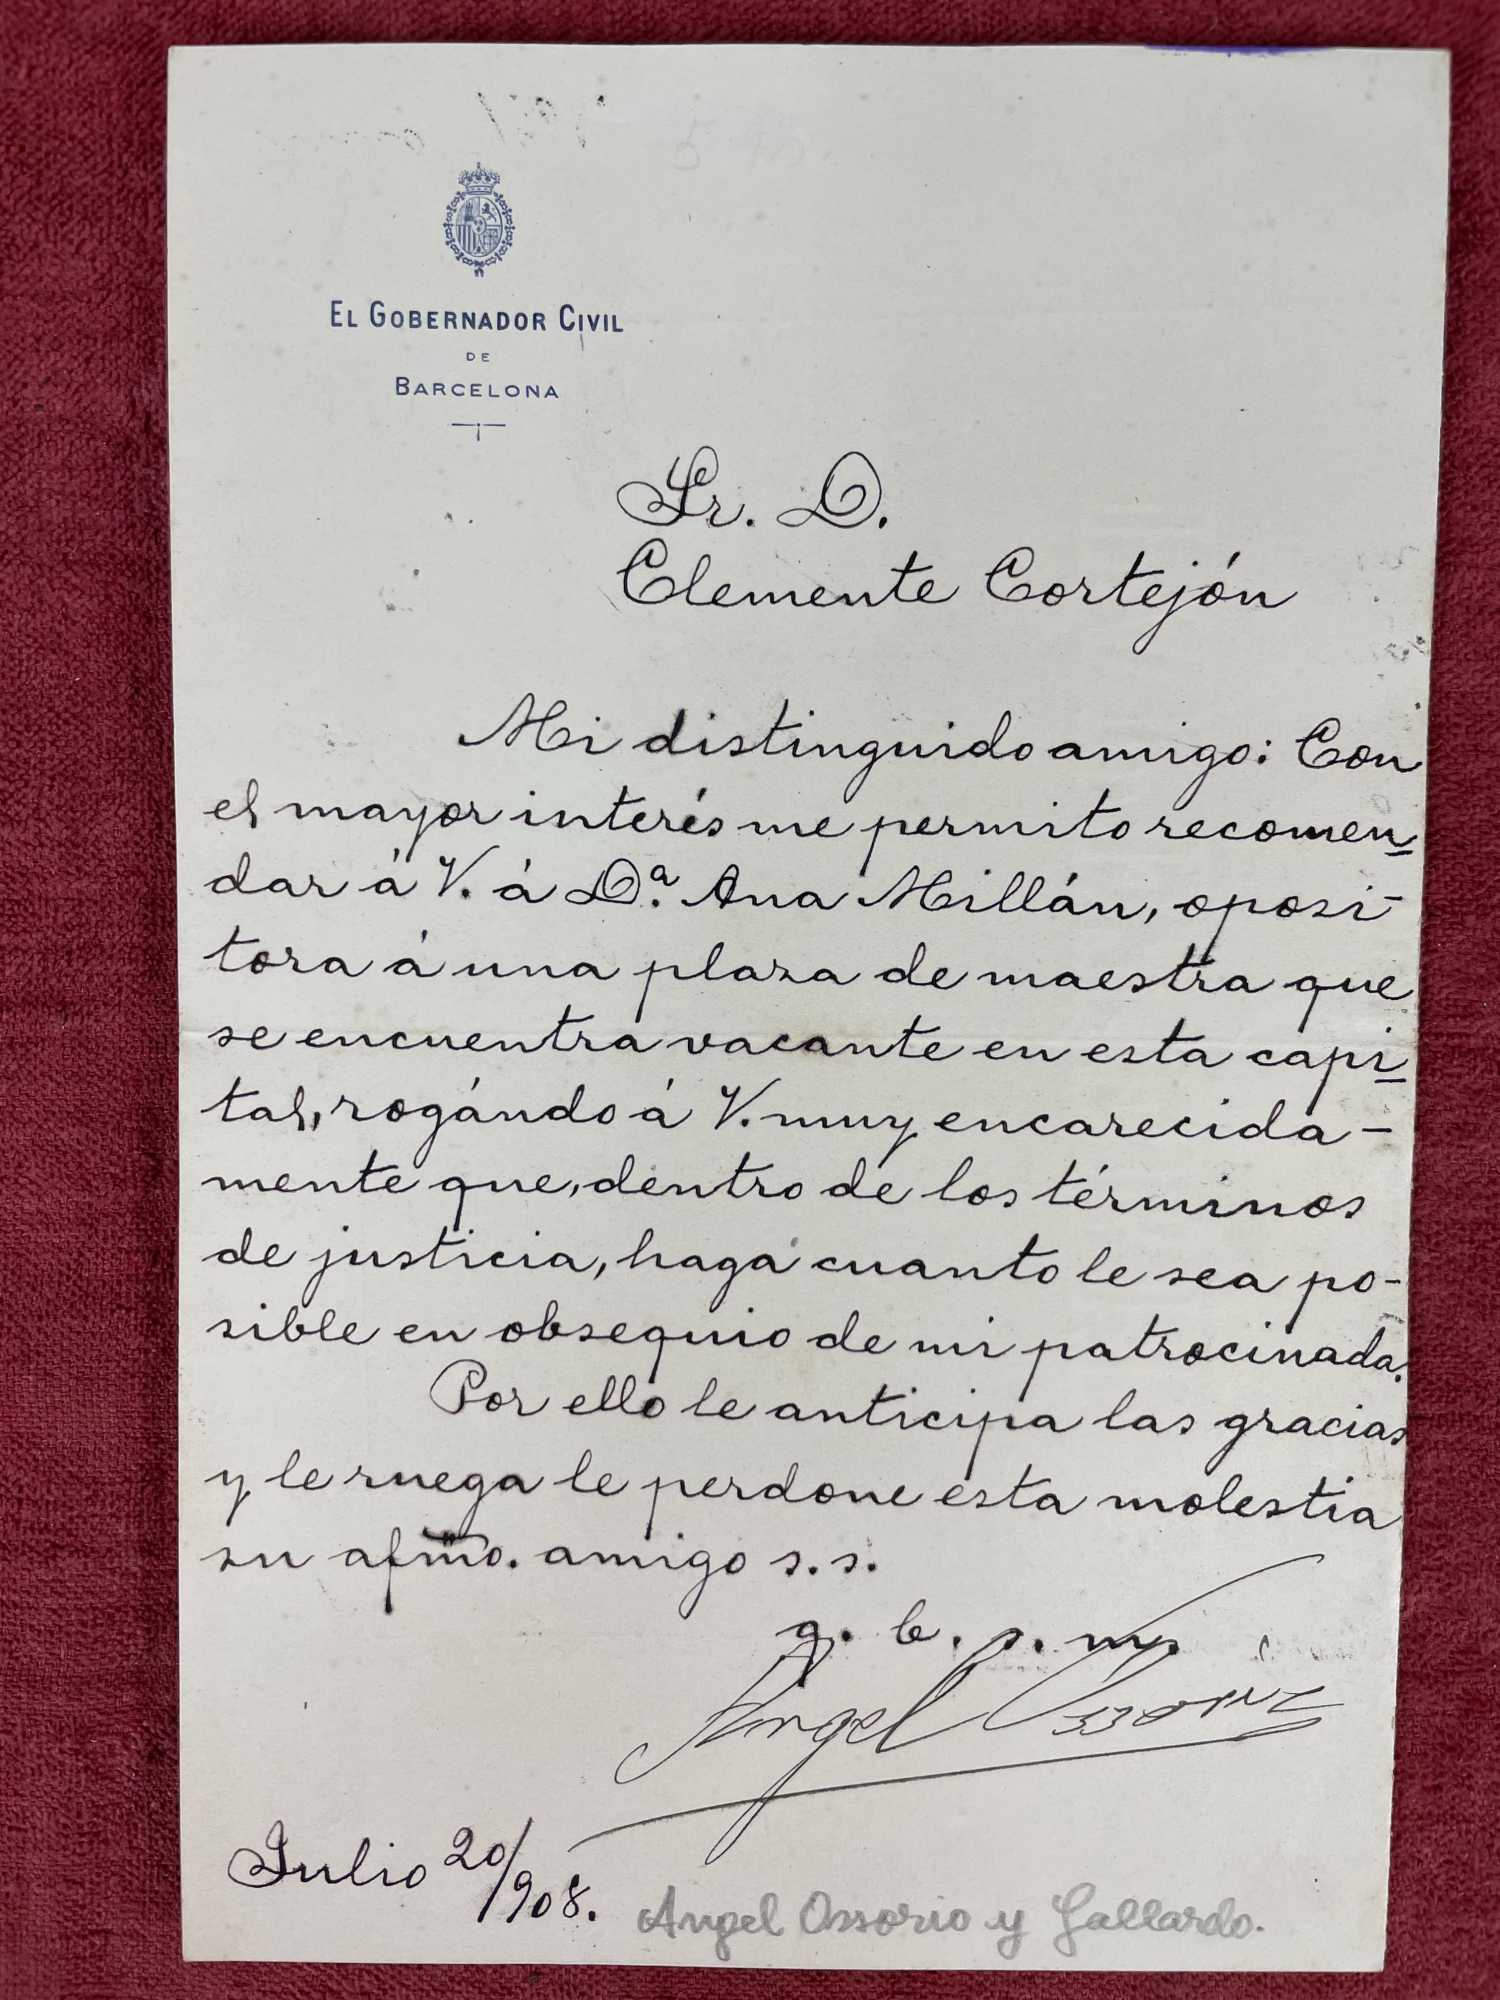 El Gobernador Civil
de
Barcelona
Sr. D.
Clemente Cortejón
Mi distinguido amigo: Con
el mayor interés me permito recomen-
dar á V. á Dª. Ana Millán, oposi-
tora á una plaza de maestra que
se encuentra vacante en esta capi-
tal, rogándo á V. muy encarecida-
mente que, dentro de los términos
de justicia, haga cuanto le sea po-
sible en obsequio de mi patrocinada.
Por ello le anticipa las gracias
y le ruega le perdone esta molestia
su afmo. amigo s. s.
q. b. s. m.
Angel Ossorio
Julio 20/908.
Angel Ossorio y Gallardo.